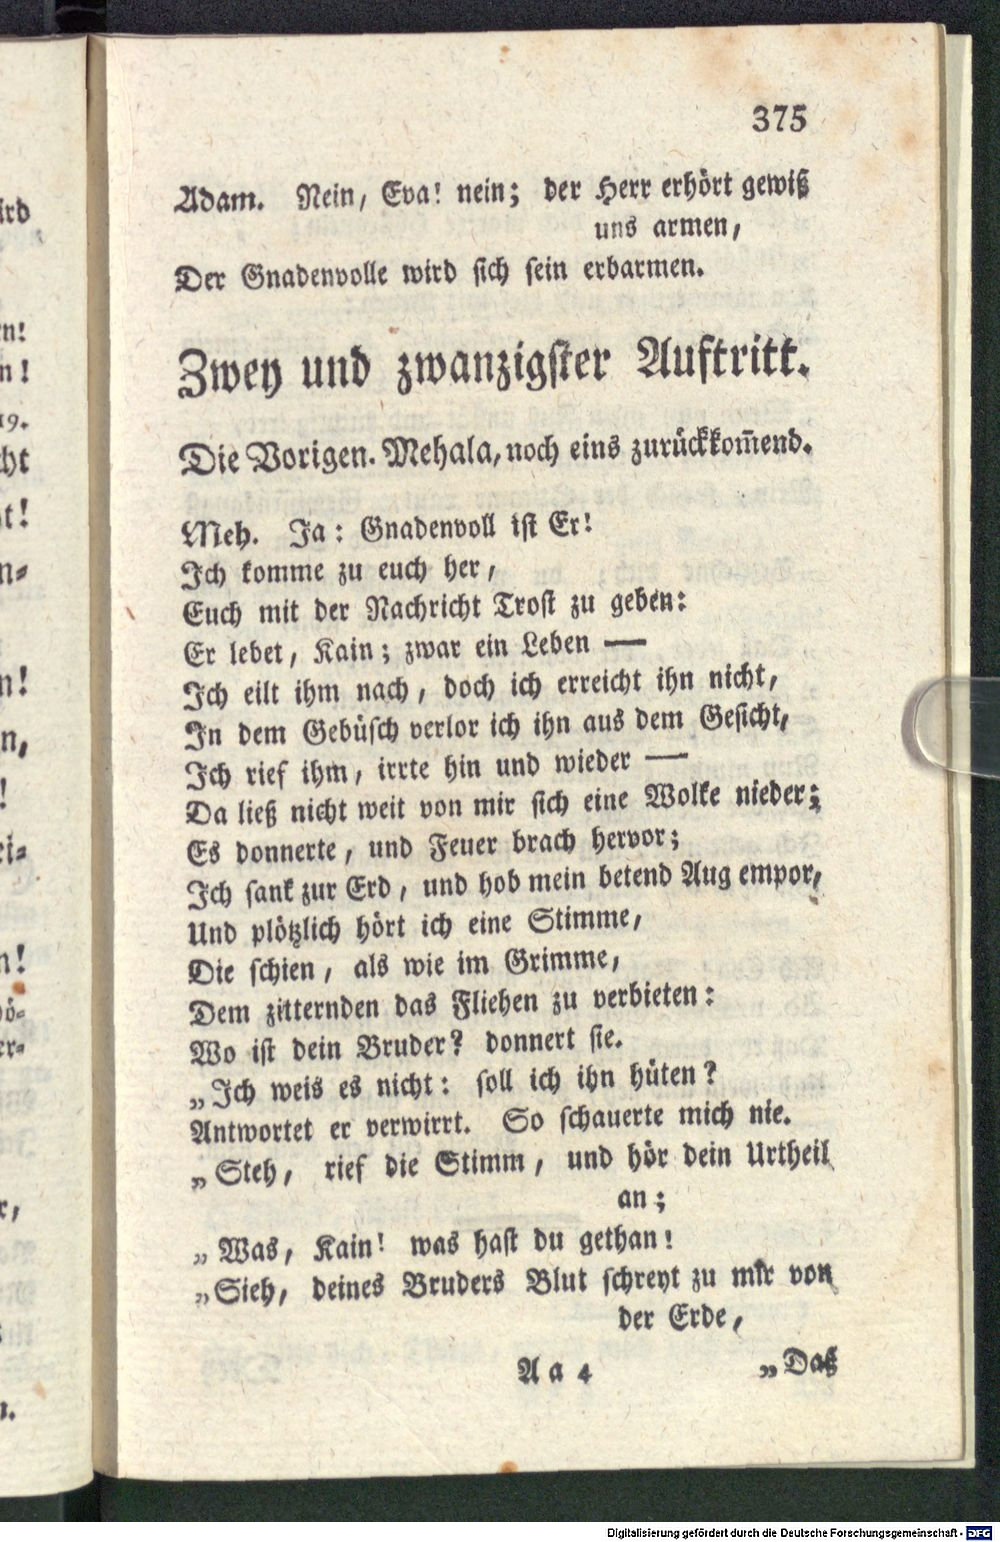 375
Adam. Nein, Eva! nein; der Herr erhört gewiß
uns armen,
Der Gnadenvolle wird sich sein erbarmen.
Zwey und zwanzigster Auftritt.
Die Vorigen. Mehala, noch eins zurückkom̄end.
Meh. Ja: Gnadenvoll ist Er!
Ich komme zu euch her,
Euch mit der Nachricht Trost zu geben:
Er lebet, Kain; zwar ein Leben —
Ich eilt ihm nach, doch ich erreicht ihn nicht,
In dem Gebüsch verlor ich ihn aus dem Gesicht,
Ich rief ihm, irrte hin und wieder —
Da ließ nicht weit von mir sich eine Wolke nieder;
Es donnerte, und Feuer brach hervor;
Ich sank zur Erd, und hob mein betend Aug empor,
Und plötzlich hört ich eine Stimme,
Die schien, als wie im Grimme,
Dem zitternden das Fliehen zu verbieten:
Wo ist dein Bruder? donnert sie.
„Ich weis es nicht: soll ich ihn hüten?
Antwortet er verwirrt. So schauerte mich nie.
„Steh, rief die Stimm, und hör dein Urtheil
an;
„Was, Kain! was hast du gethan!
„Sieh, deines Bruders Blut schreyt zu mir von
der Erde,
Aa 4 „Daß
Digitalisierung gefördert durch die Deutsche Forschungsgemeinschaft - DFG